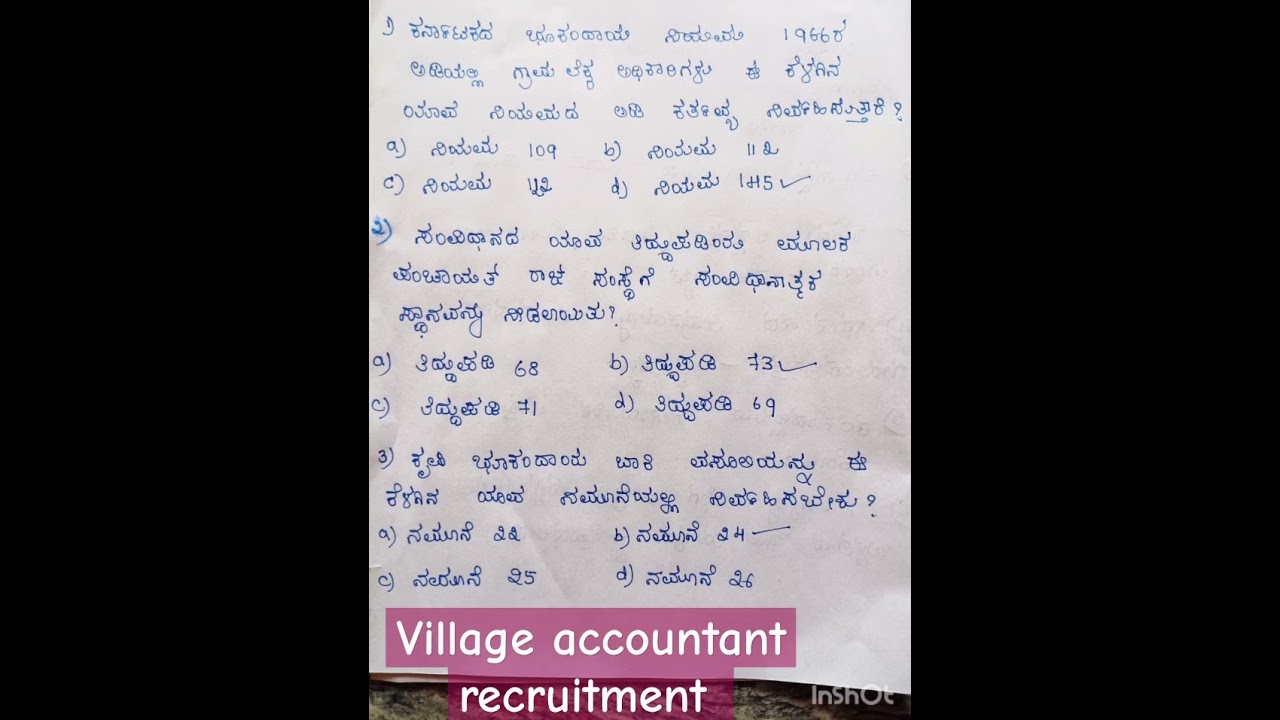 1) ಕರ್ನಾಟಕದ ಭೂಕಂದಾಯ ನಿಯಮ 1966ರ
ಅಡಿಯಲ್ಲಿ ಗ್ರಾಮ ಲೆಕ್ಕ ಅಧಿಕಾರಿಗಳು ಈ ಕೆಳಗಿನ
ಯಾವ ನಿಯಮದ ಅಡಿ ಕರ್ತವ್ಯ ನಿರ್ವಹಿಸುತ್ತಾರೆ?
a) ನಿಯಮ 109 b) ನಿಯಮ 112
c) ನಿಯಮ d) ನಿಯಮ 145
2) ಸಂವಿಧಾನದ ಯಾವ ತಿದ್ದುಪಡಿಯ ಮೂಲಕ
ಪಂಚಾಯತ್ ರಾಜ ಸಂಸ್ಥೆಗೆ ಸಂವಿಧಾನಾತ್ಮಕ
ಸ್ಥಾನವನ್ನು ನೀಡಲಾಯಿತು?
a) ತಿದ್ದುಪಡಿ 68 b) ತಿದ್ದುಪಡಿ 73
c) ತಿದ್ದುಪಡಿ 71 d) ತಿದ್ದುಪಡಿ 69
3) ಕೃಷಿ ಭೂಕಂದಾಯ ಬಾಕಿ ವಸೂಲಿಯನ್ನು ಈ
ಕೆಳಗಿನ ಯಾವ ನಮೂನೆಯಲ್ಲಿ ನಿರ್ವಹಿಸಬೇಕು?
a) ನಮೂನೆ 22 b) ನಮೂನೆ 24
c) ನಮೂನೆ 25 d) ನಮೂನೆ 26
Village accountant
recruitment
InShOt